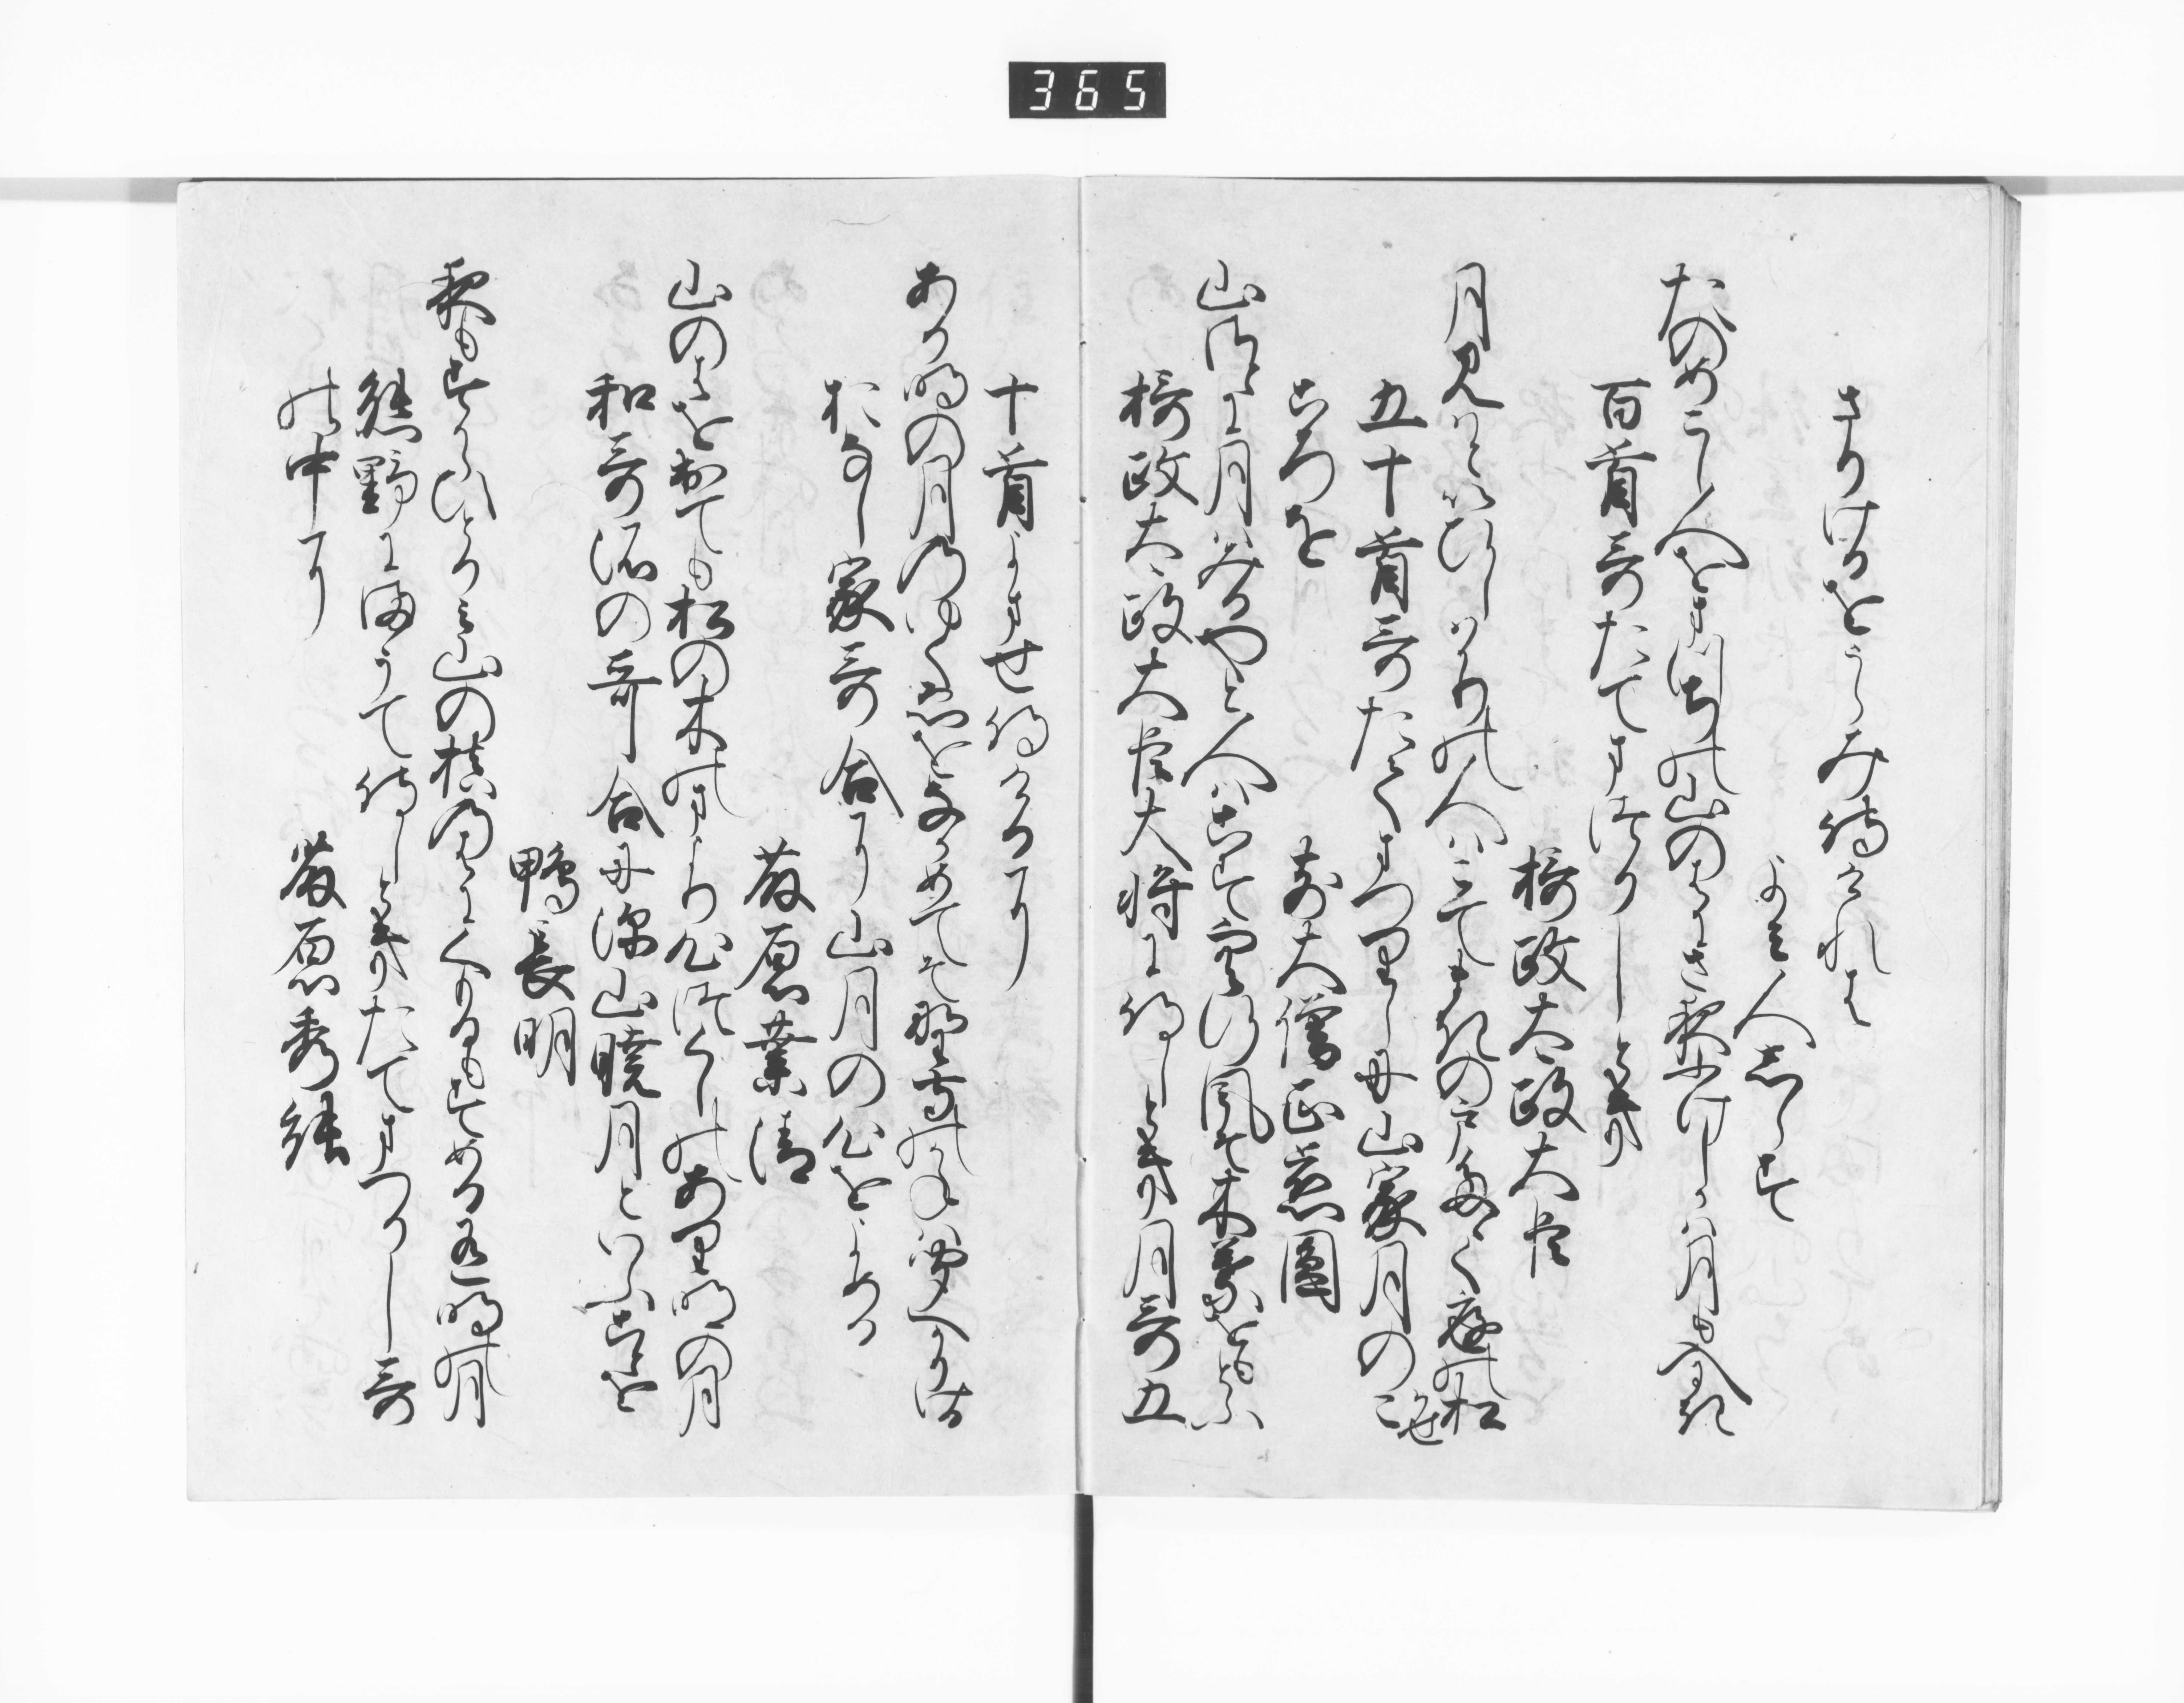 365
さりけるをうらみ侍けれは
よみ人しらす
たのめこし人をまつちの山のはにさ夜ふけしかは月も入にき
百首哥たてまつりしとき
摂政太政大臣
月見はといひしはかりの人はこてまきの戸たゝく庭の松
五十首哥たてまつりしに山家月のこ
ころを
前大僧正慈圓
山さとに月はみるやと人はこす空行風そ木葉をもとふ
摂政太政大臣大将に侍しとき月哥五
十首よませ侍けるに
あり明の月のゆくゑをなかめてそ野寺のかねは聞へかりける
おなし家哥合に山月の心をよめる
藤原業清
山のはをいてゝも松の木のまより心つくしのあり明の月
和哥所の哥合に深山暁月といふことを
鴨長明
夜もすからひとりみ山の槙のはにくもるもすめる有明の月
熊野にまうて侍しときたてまつりし哥
の中に
藤原秀能